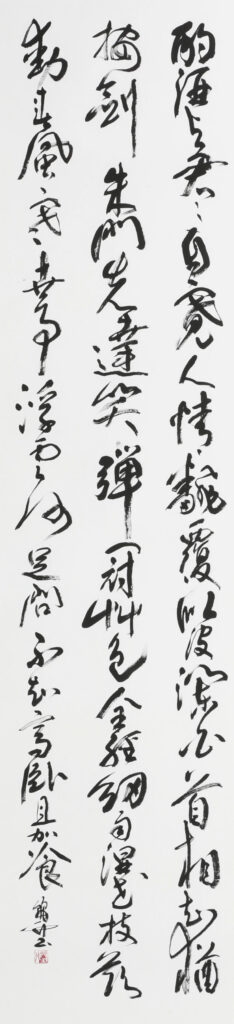 酌酒与君々自寛人情飜覆似波瀾白首相知猶
按劍朱門先達笑彈冠艸色全經細雨濕花枝欲
動春風寒世事浮雲何足問不如高臥且加飡